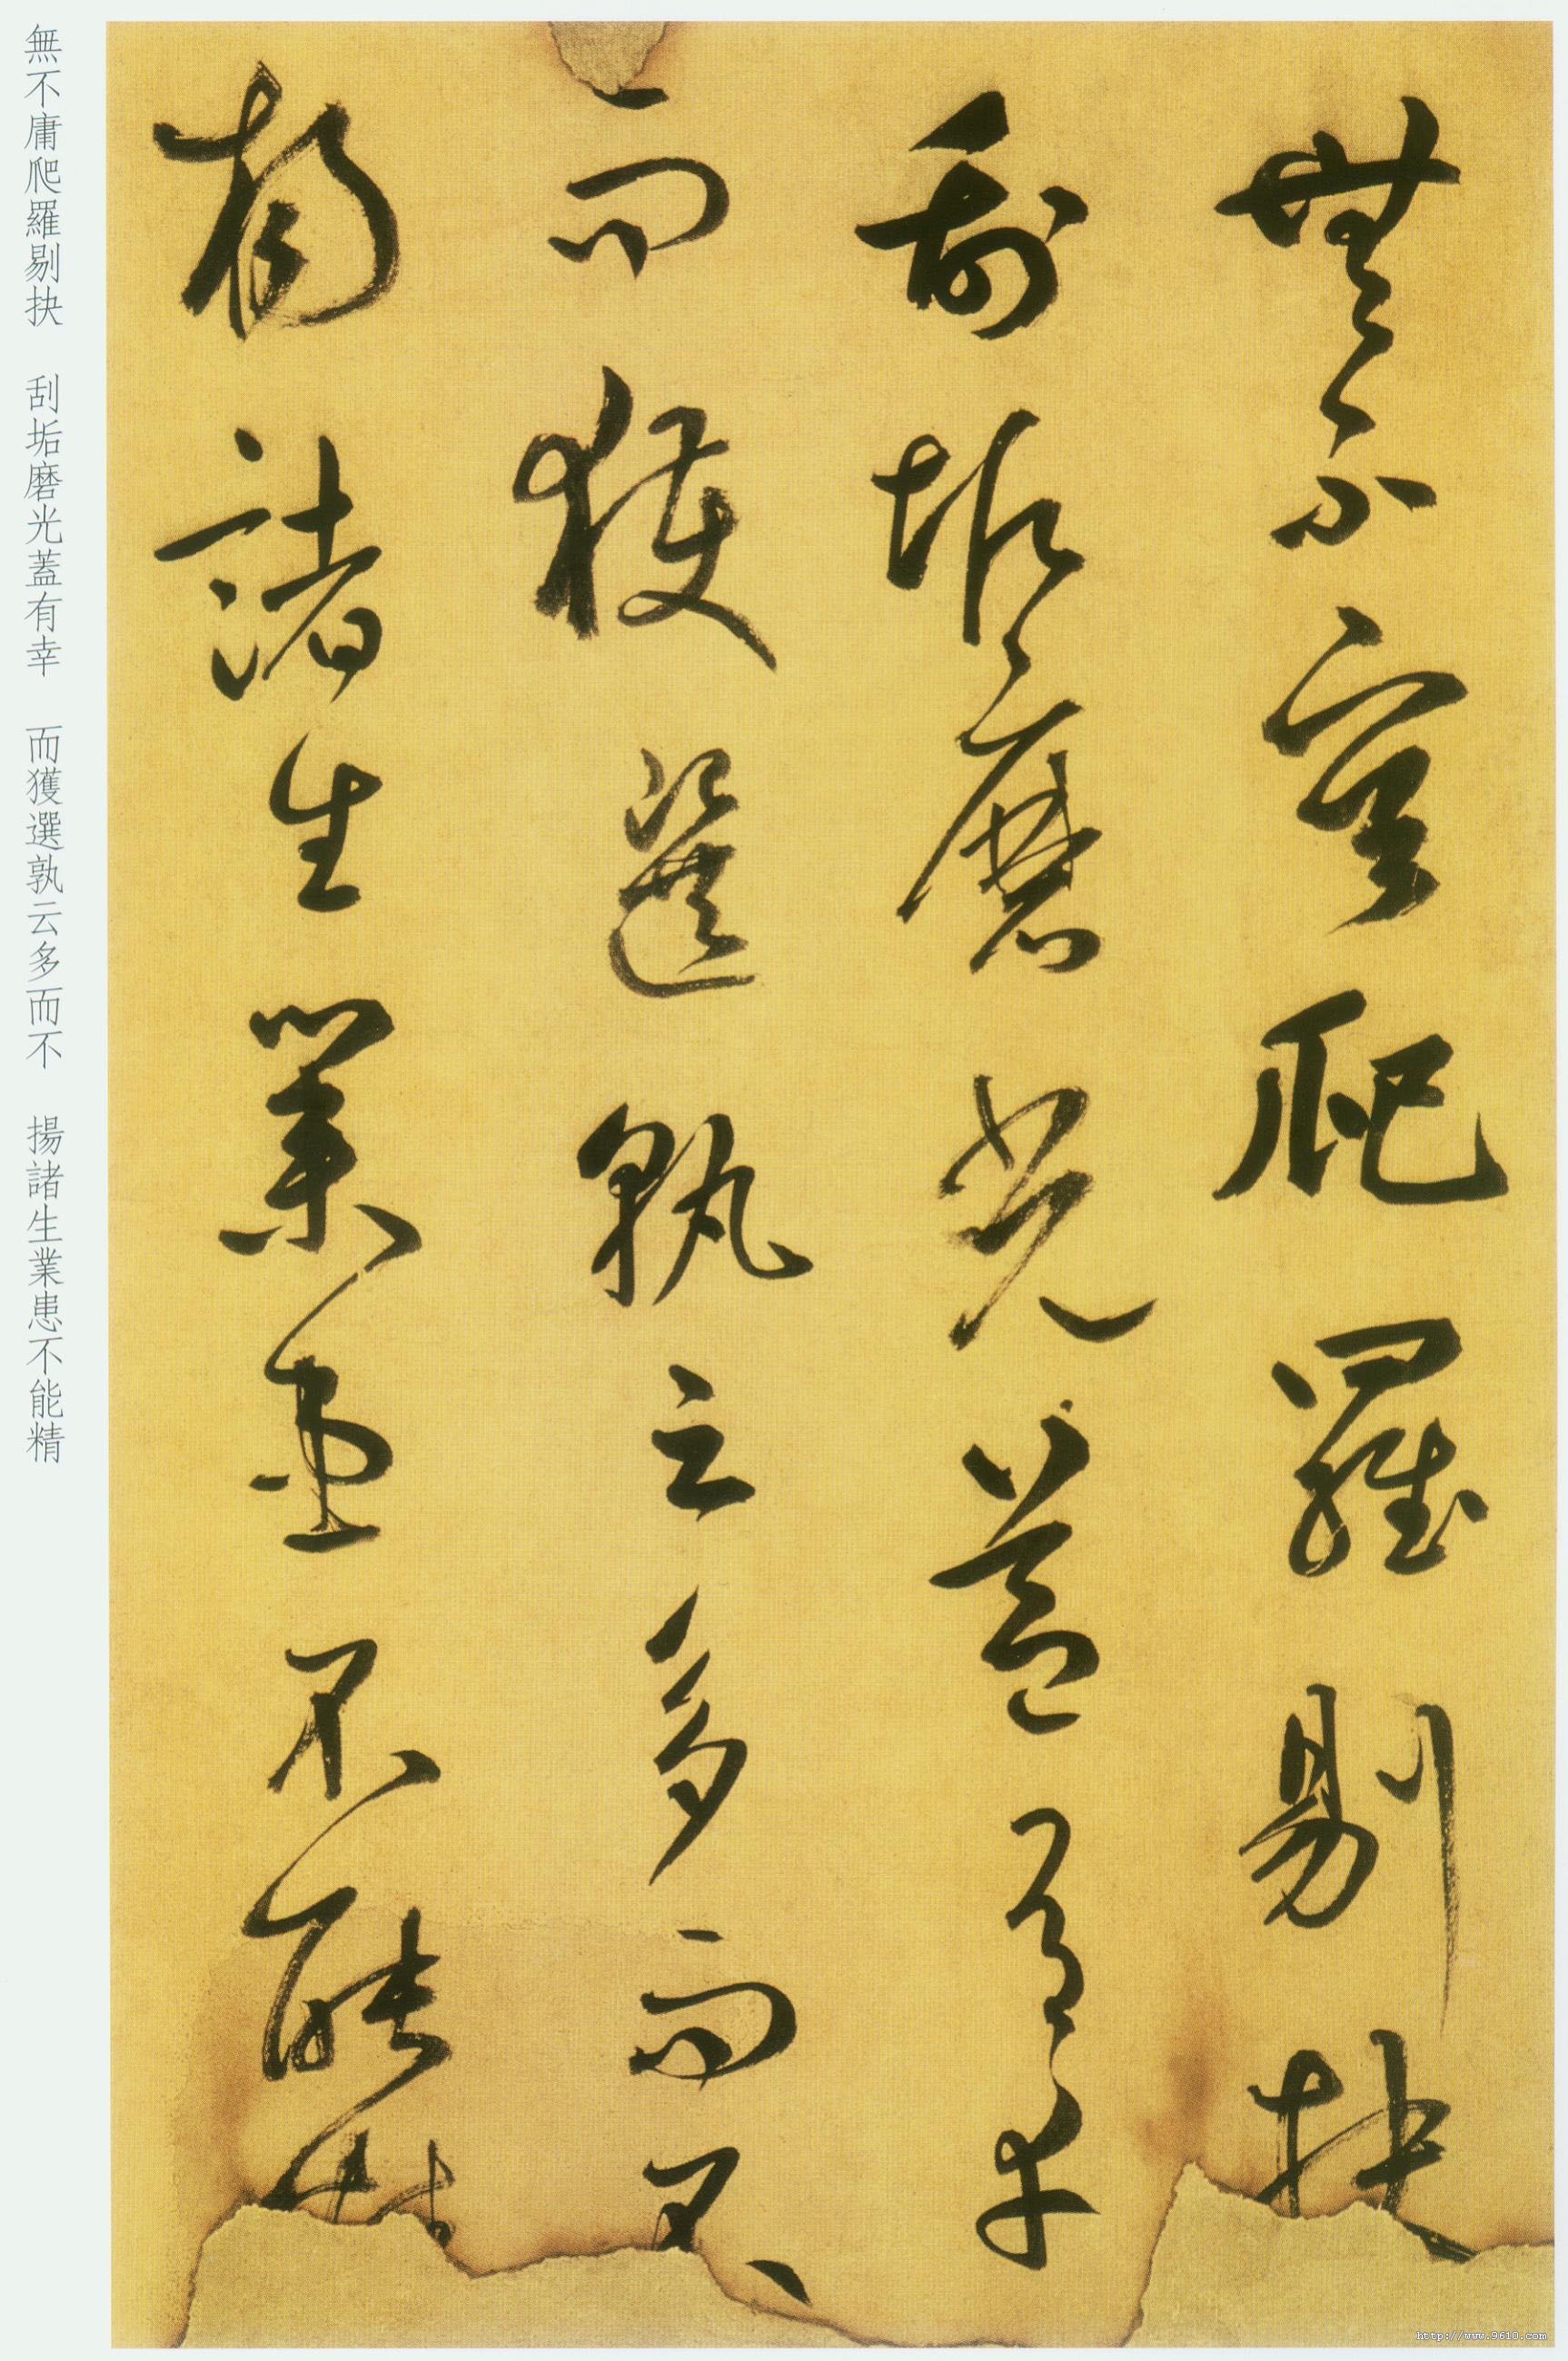 無不庸爬羅剔抉
刮垢磨光蓋有幸
而獲選孰云多而不
揚諸生業患不能精
無不庸爬羅剔抉 刮垢磨光蓋有幸 而獲選孰云多而不 揚諸生業患不能精
http://www.9610.com